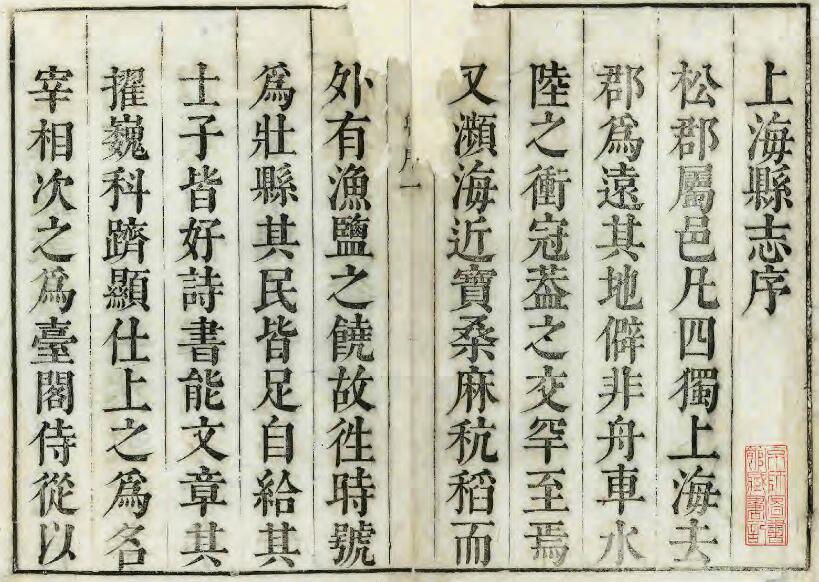 上海縣志序
松郡屬邑凡四獨上海去
郡爲遠其地僻非舟車水
陸之衝冠葢之交罕至焉
又瀕海近寶桑麻秔稻而
外有漁鹽之饒故徃時號
爲壯縣其民皆足自給其
士子皆好詩書能文章其
擢巍科躋顯仕上之爲名
宰相次之爲臺閣侍從以